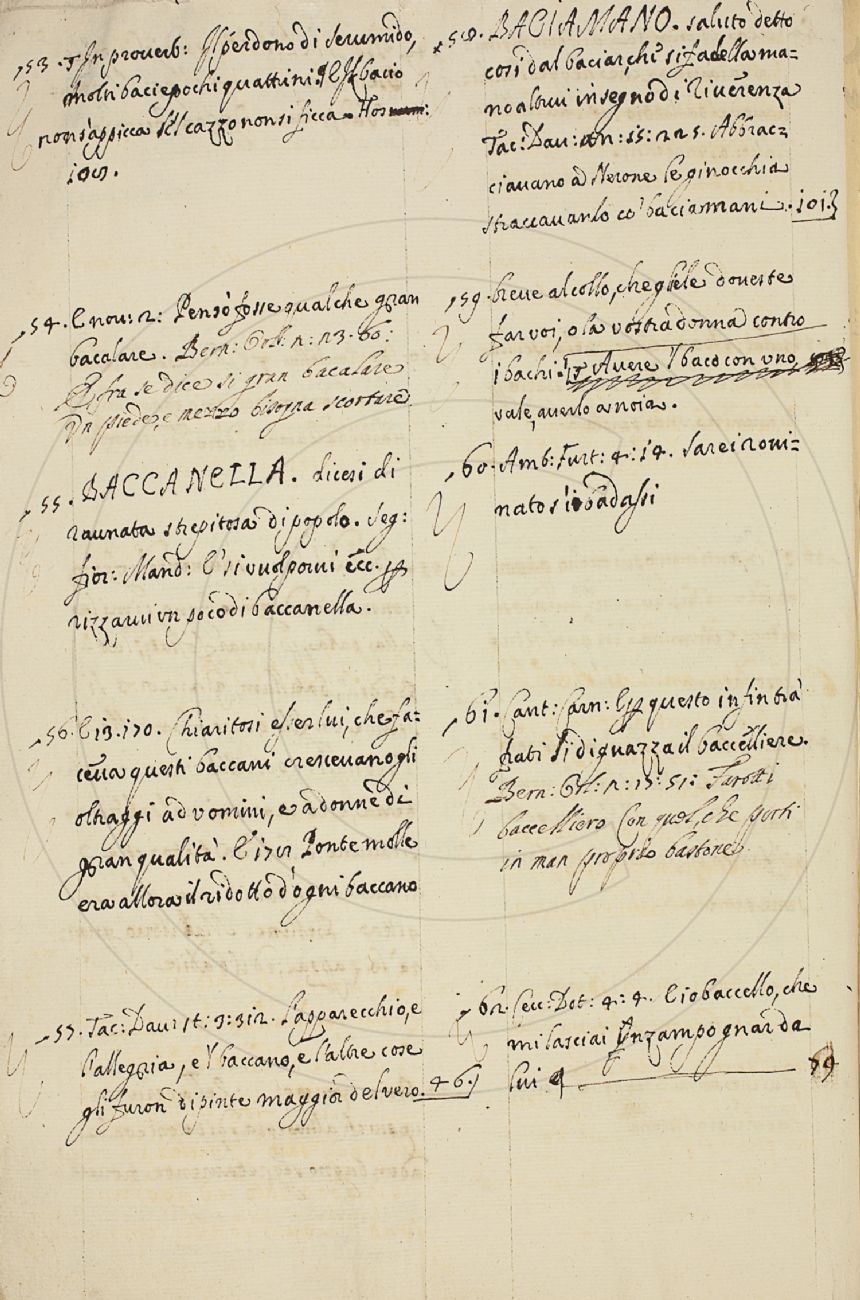 53. In proverb: Il perdono di ser umido,
molti baci e pochi quattrini. Il bacio
non s'appicca se 'l cazzo non si ficca.
109.
54. E nov: 2: Pensò fosse qualche gran
bacalare. Bern: Orl: 2: 23. 60:
E fra se dice si gran bacalare
Un piede, e mezzo bisogna scortare
55. BACCANELLA. dicesi di
raunata strepitosa di popolo. Seg:
fior: Mand: E si vuol porvi ecc. p
rizzarvi un poco di baccanella.
56. E 13. 170. Chiaritosi esser lui, che fa-
ceva questi baccani crescevano gli
oltraggi ad vomini, e a donne di
gran qualità. E 178 Ponte molle
era allora il ridotto d'ogni baccano
57. Tac: Dav: st: 3: 312. L'apparecchio, e
l'allegria, e 'l baccano, e l'altre cose
gli furon dipinte maggior del vero. 46.
58. BACIAMANO. saluto detto
così dal baciar, chi si fa della ma-
no altrui in segno di riverenza
Tac: Dav: an: 15: 225. Abbrac-
ciavano a Nerone le ginocchia
straccavanlo co' baciamani. 101.
59. breve al collo, che gliele doveste
far voi, o la vostra donna contro
i bachi. Avere 'l baco con uno,
vale, averlo a noia.
60. Amb: Furt: 4: 14. Sarei rovi-
nato s'io badassi
61. Cant: Carn: E p questo infin tra
frati Si diguazza il baccelliere.
Bern: Orl: 2: 15: 51: Farotti
baccelliero Con quel, che porti
in man proprio bastone.
62. Cecc: Dot: 4: 4. E io baccello, che
mi lasciai Inzampognar da
lui